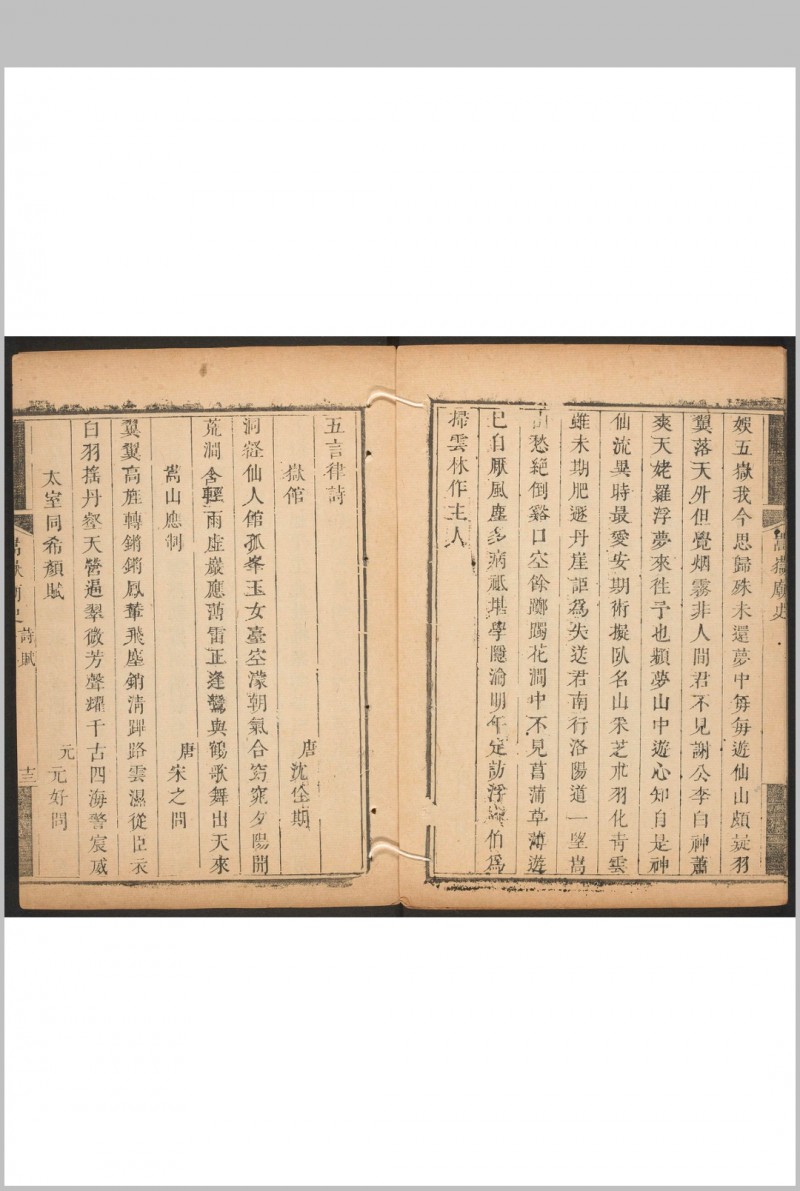 嵩嶽廟史
娛五嶽我今思歸殊未還夢中每每遊仙山頗疑羽
翼落天外但覺烟霧非人間君不見謝公李白神蕭
爽天姥羅浮夢來徃予也顏夢山中遊心知自是神
仙流異時最愛安期術擬臥名山采芝朮羽化青雲
雖未期肥遯丹崖詎爲失送君南行洛陽道一望嵩
高愁絕倒谿口空餘躑躅花澗中不見菖蒲草薄遊
已自厭風塵多病祗堪學隱淪明年定訪浮丘伯爲
掃雲林作主人
五言律詩
嶽館 唐 沈佺期
洞壑仙人館孤峯玉女臺空濛朝氣合窈窕夕陽開
荒澗含輕雨虛巖應薄雷正逢鸞與鶴歌舞出天來
嵩山應制 唐 宋之問
翼翼高旌轉鏘鏘鳳輦飛塵銷清蹕路雲濕從臣衣
白羽搖丹壑天營逼翠微芳聲耀千古四海警宸威
太室同希顏賦 元 元好問
嵩嶽廟史 詩賦 十三